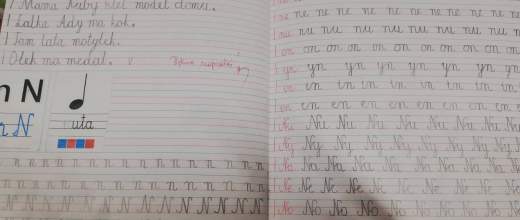 Mama model domu.
Lalka Ady ma kok.
Tam lata motylek.
Olek ma medal.
n N
n N
uta
n n n n n n n n n n n n n n n
n n n n n n n n n n n n n n
N N N N N N N N N N N N N N
ne ne ne ne ne ne ne ne ne
nu nu nu nu nu nu nu nu nu
on on on on on on on on on
yn yn yn yn yn yn yn yn
in in in in in in in in
en en en en en en en en
Nu Nu Nu Nu Nu Nu Nu Nu
Ny Ny Ny Ny Ny Ny Ny Ny
Na Na Na Na Na Na Na Na
Ne Ne Ne Ne Ne Ne Ne Ne
No No No No No No No No